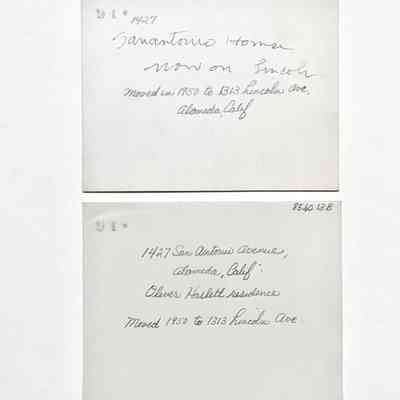 1427
San antonio Home
now on Lincoln
Moved in 1950 to 1313 Lincoln Ave,
Alameda, Calif
1427 San Antonio Avenue,
Alameda, Calif.
Oliver Haslett residence
Moved 1950 to 1313 Lincoln Ave.